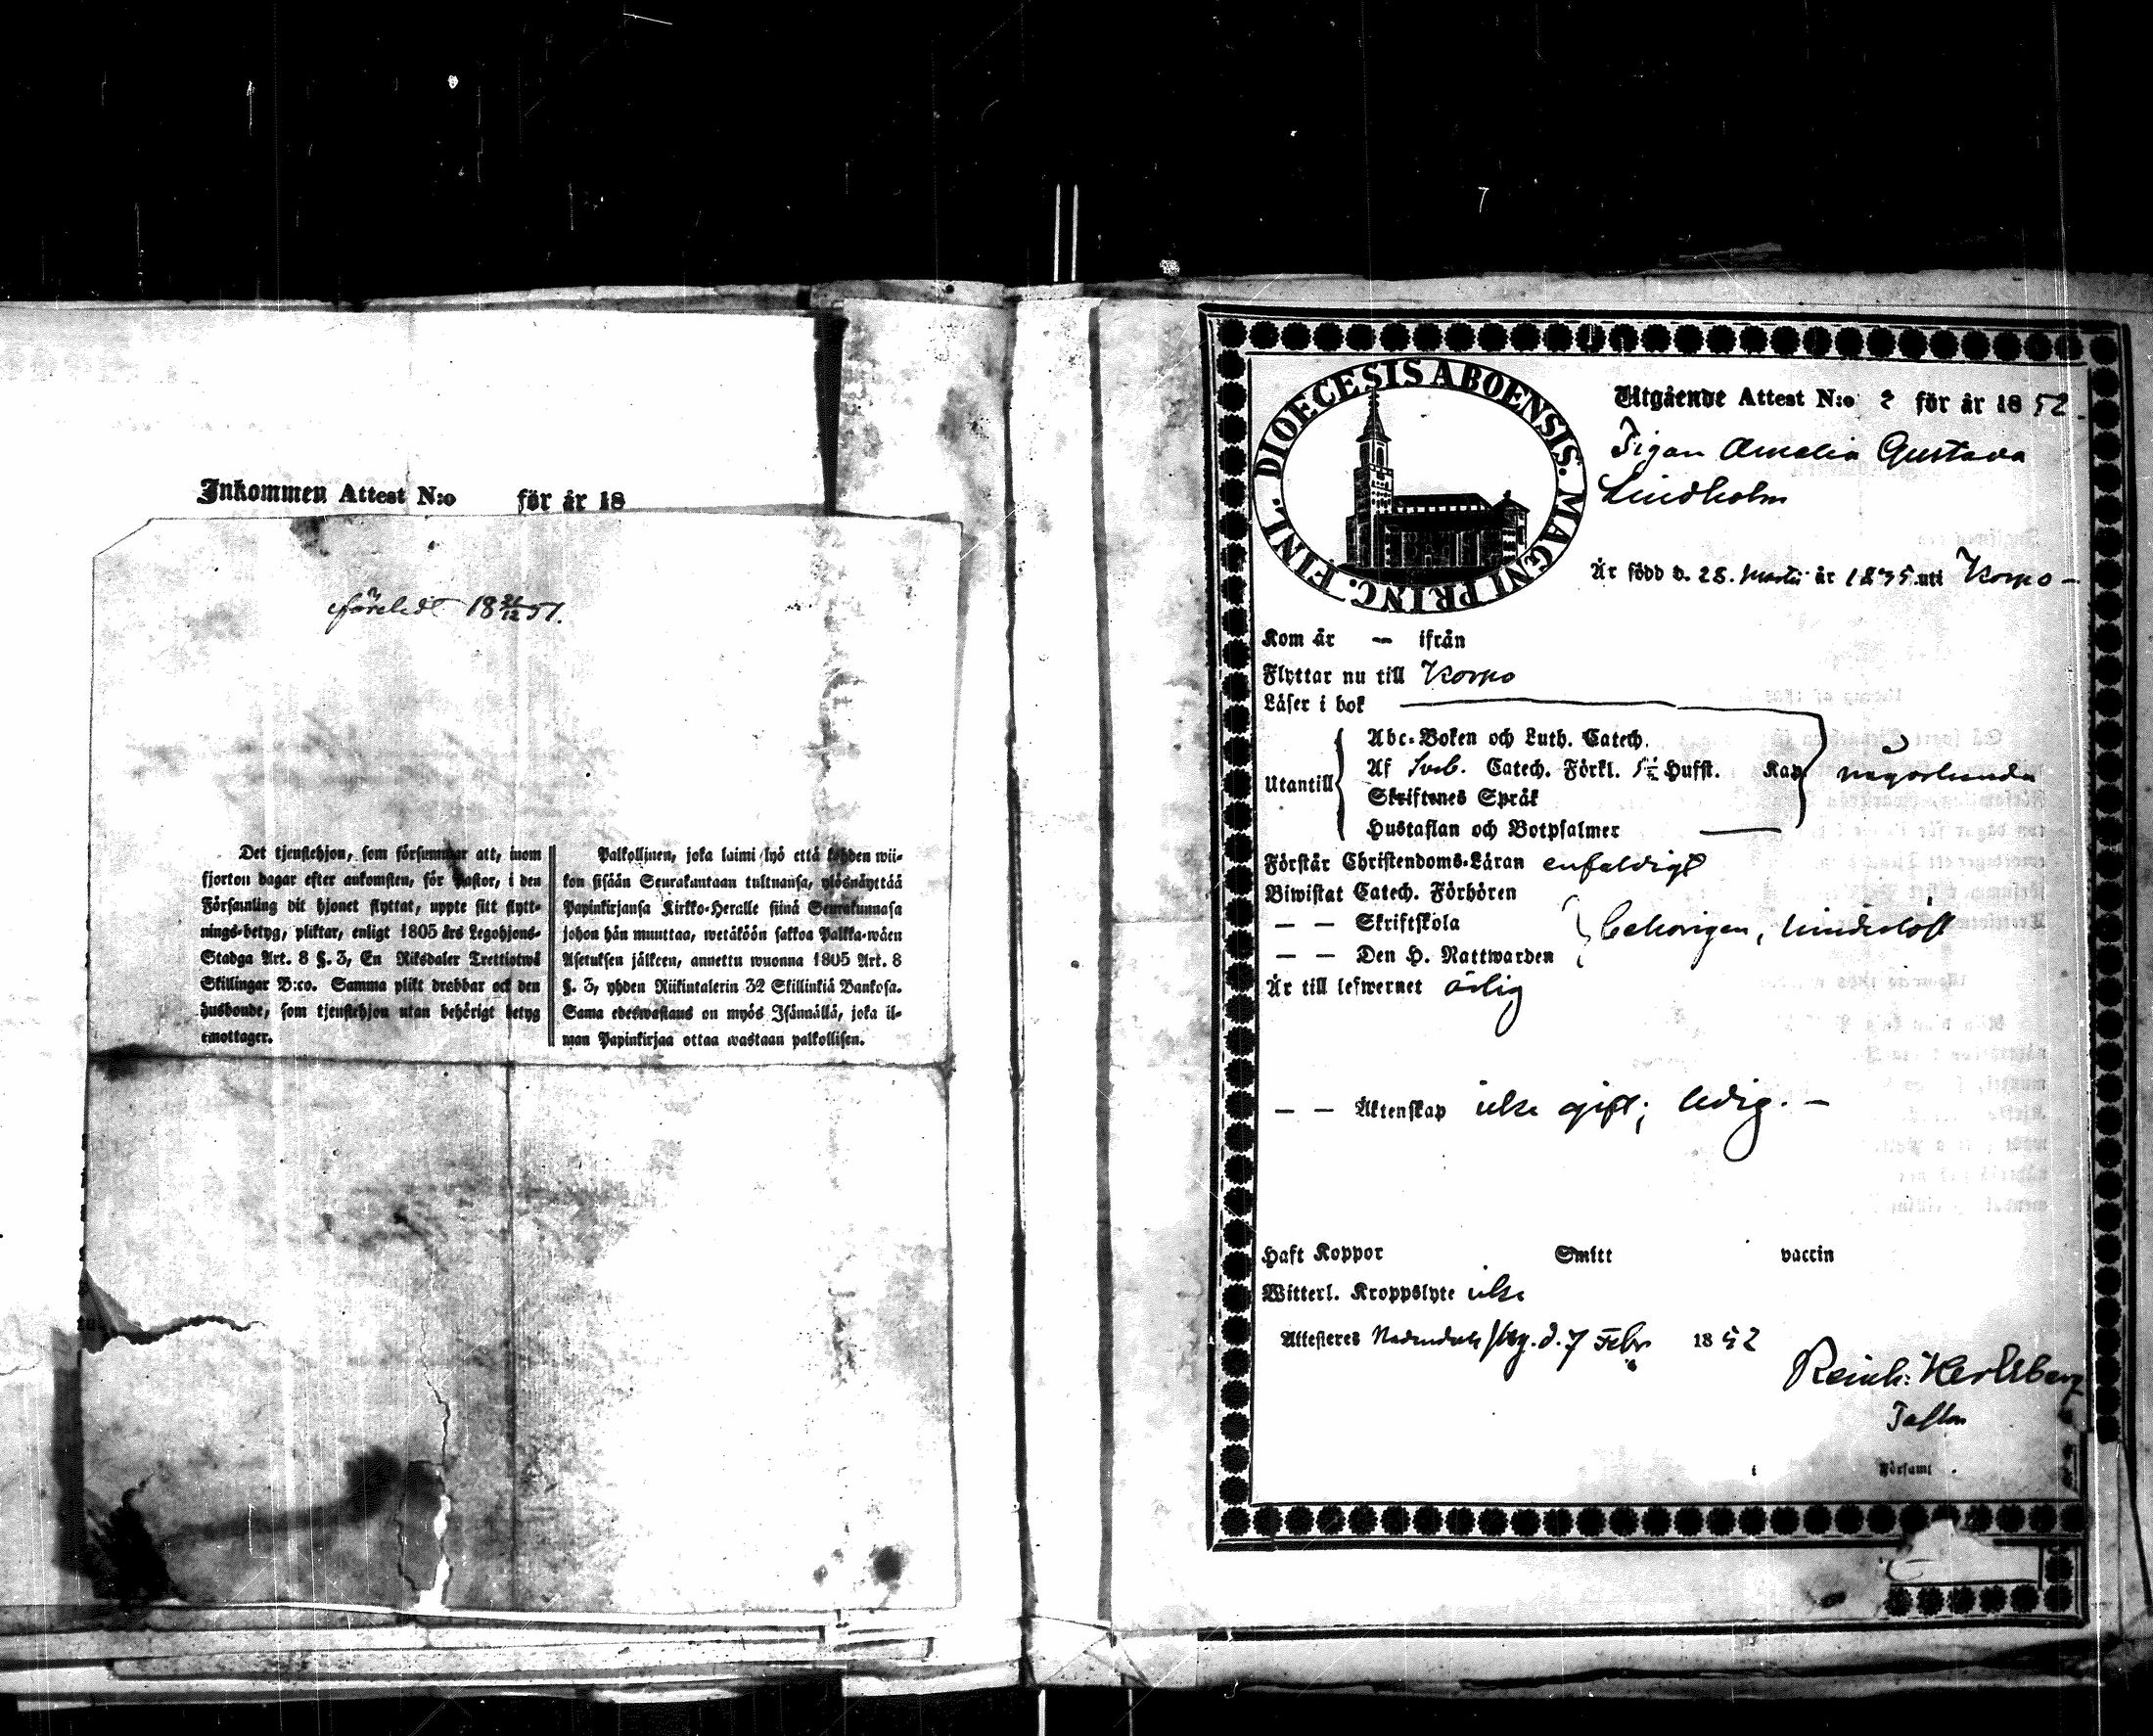 Inkommen Attest N:o för år 18
18 31/12 51.
Det tjenstehjon, som försummar att, inom
fjorton dagar efter ankomsten, för Pastor, i den
Församling dit hjonet flyttat, uppte sitt flytt-
nings-betyg, pliktar, enligt 1805 års Legohjons-
Stadga Art. 8 §. 3, En Riksdaler Trettiotwå
Skillingar B:co. Samma plikt drabbar ock den
husbonde, som tjenstehjon utan behörigt betyg
emottager.
Palkollinen, joka laimi lyö että kahden wii-
kon sisään Seurakuntaan tultuansa, ylösnäyttää
Papinkirjansa Kirkko-Heralle siinä Seurakunnasa
johon hän muuttaa, wetäköön sakkoa Palkka-wäen
Asetuksen jälkeen, annettu wuonna 1805 Art. 8
§. 3, yhden Riikintalerin 32 Skillinkiä Bankosa.
Sama edeswastaus on myös Isännällä, joka il-
man Papinkirjaa ottaa wastaan palkollisen.
DIOECESIS ABOENSIS. MAGNI PRINC. FINL.
Utgående Attest N:o 2 för år 1852.
Pigan Amalia Gustava
Lindholm
Är född d. 28. Martii år 1835 uti Korpo –
Kom år – ifrån
Flyttar nu till Korpo
Läser i bok
Utantill
Abc-Boken och Luth. Catech.
Af Sveb. Catech. Förkl. 5 Hufst. Kap någorlunda
Skriftenes Språk
Hustaflan och Botpsalmer
Förstår Christendoms-Läran enfaldigt
Biwistat Catech. Förhören
– – Skriftskola behörigen, hinderslöst
– – Den H. Nattwarden
Är till lefwernet ärlig
– – Äktenskap icke gift; ledig. –
Haft Koppor Smitt vaccin
Witterl. Kroppslyte icke
Attesteres Nådendals d. 7 Febr 1852
Reinh:
Pastor
i Församl.